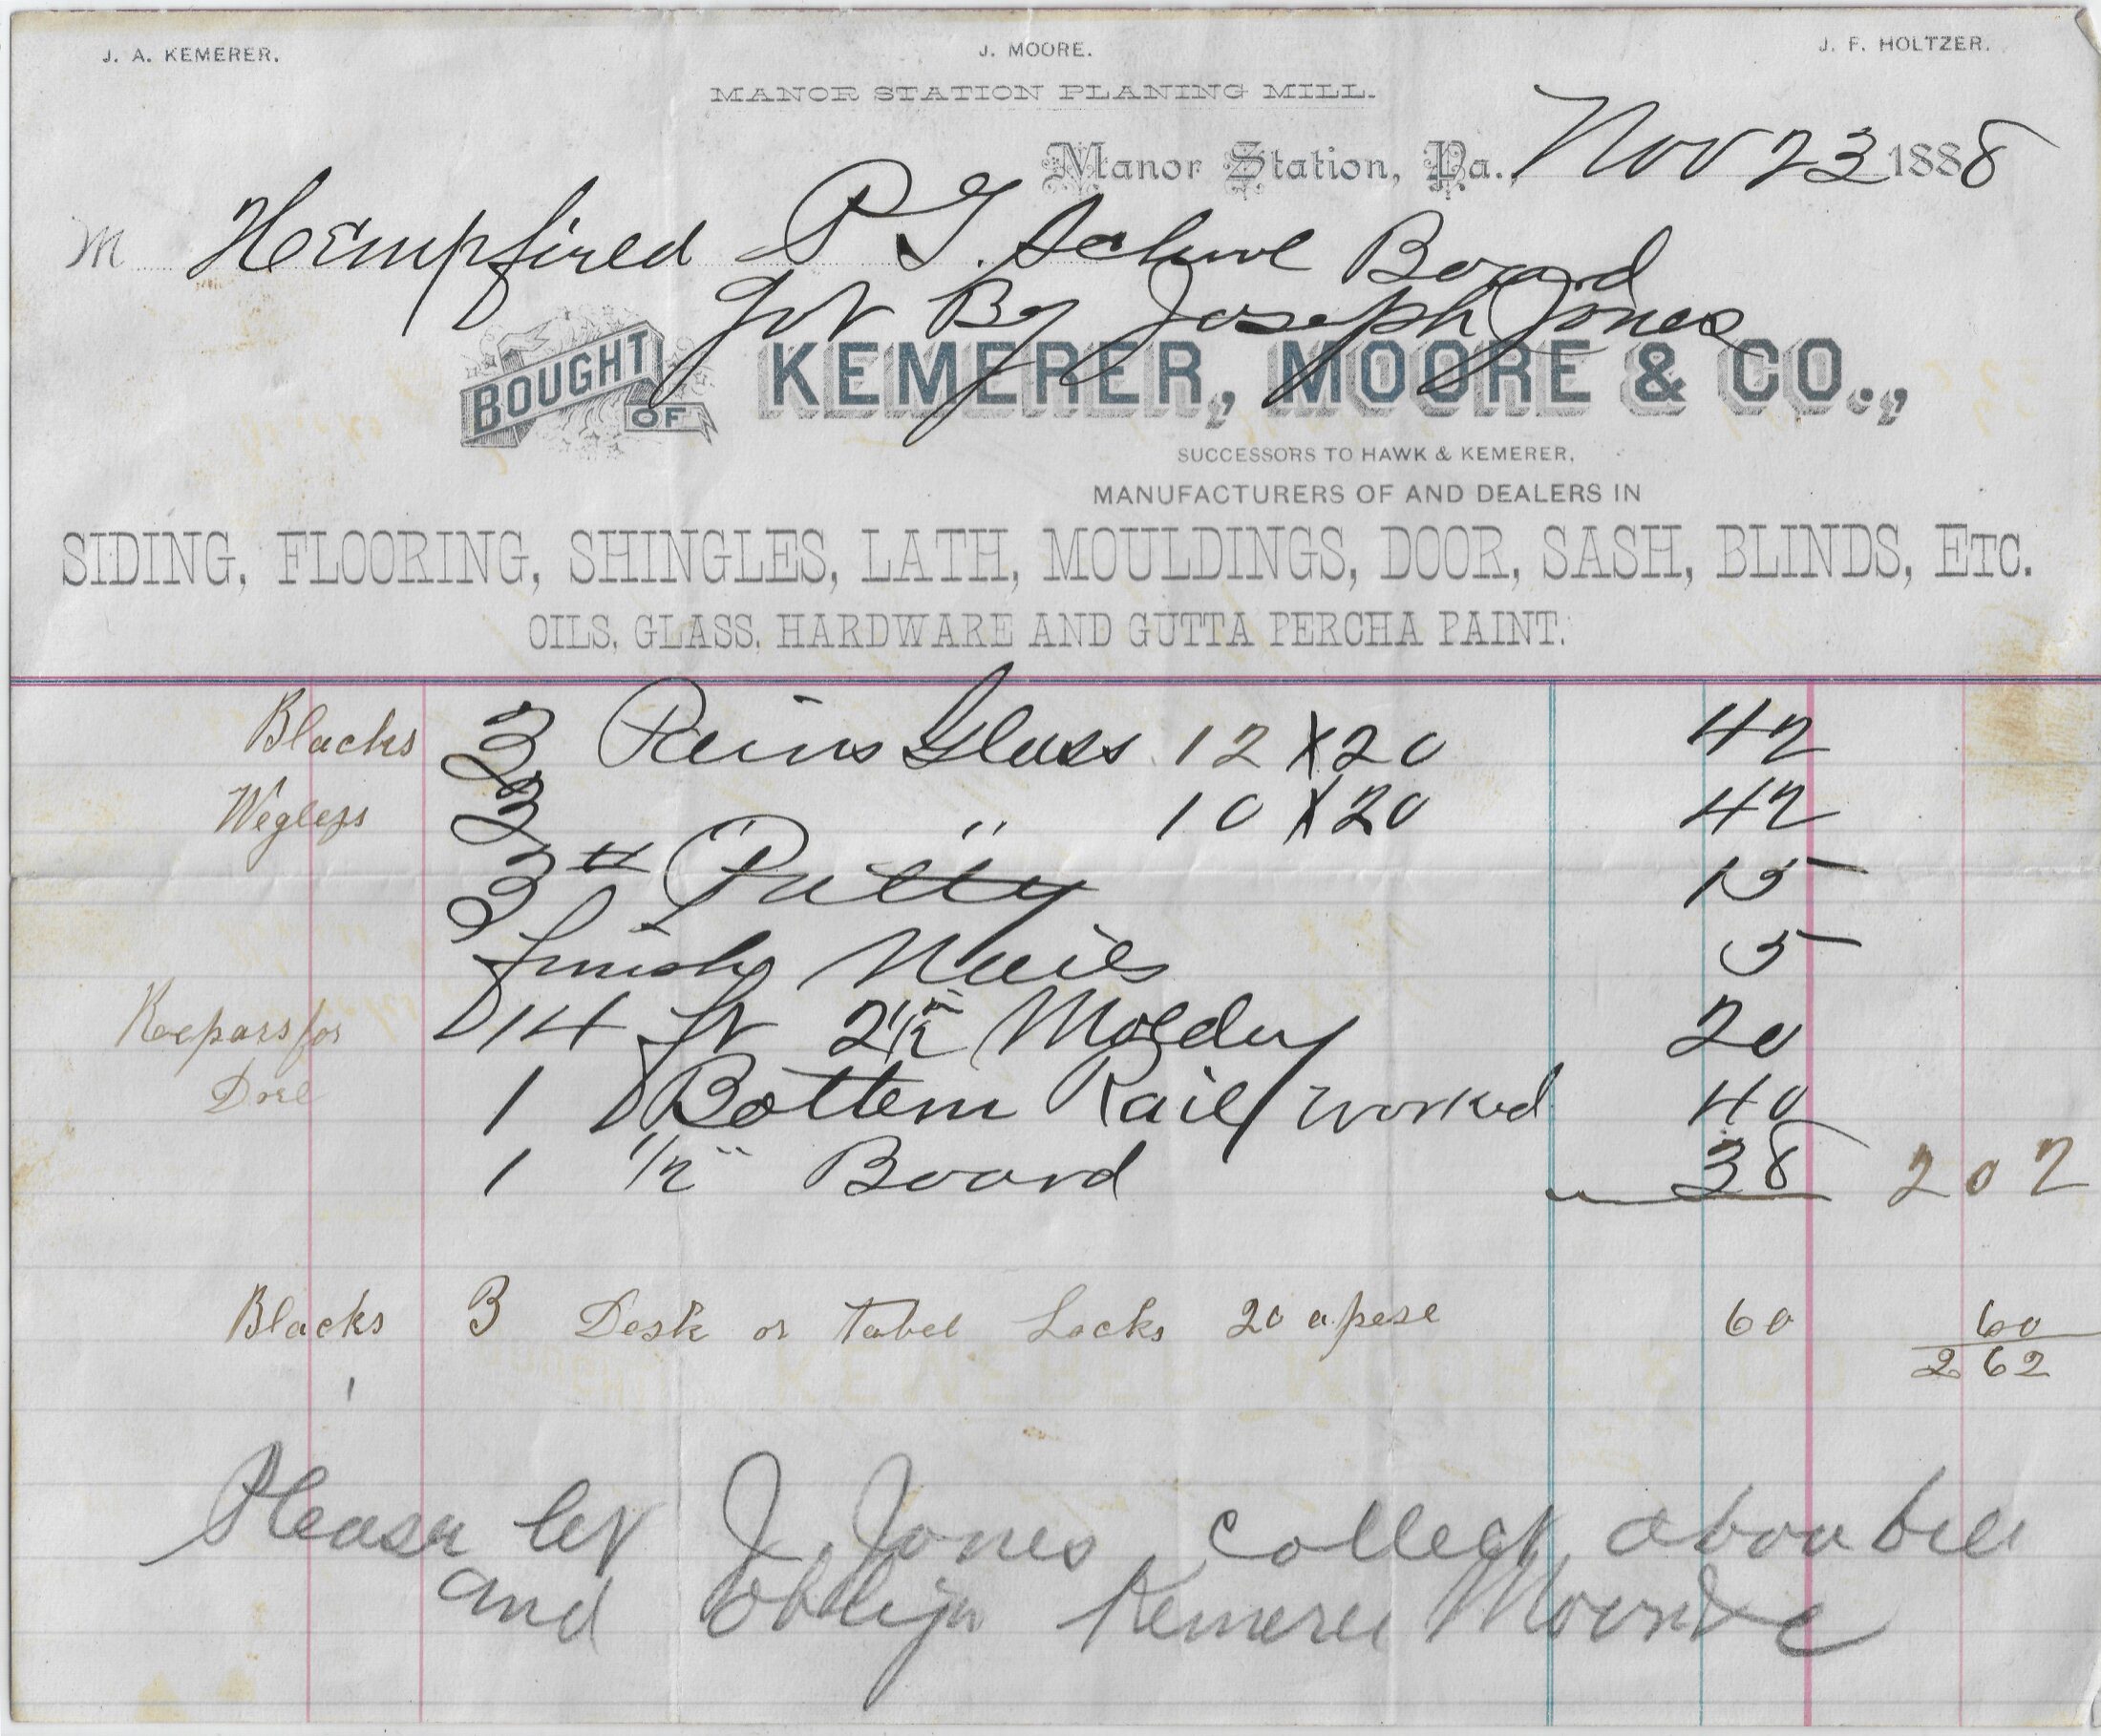 J. A. KEMERER. J. MOORE. J. F. HOLTZER.
MANOR STATION PLANING MILL.
Manor Station, Pa., Nov 23 1888
M Hempfired P T. School Board
got By Joseph Jones
BOUGHT OF KEMERER, MOORE & CO.,
SUCCESSORS TO HAWK & KEMERER,
MANUFACTURERS OF AND DEALERS IN
SIDING, FLOORING, SHINGLES, LATH, MOULDINGS, DOOR, SASH, BLINDS, ETC.
OILS, GLASS, HARDWARE AND GUTTA PERCHA PAINT.
Blacks 3 Pains Glass 12 X 20 42
3 " 10 X 20 42
3 # Putty 15
finish Nails 5
Reepars for 14 ft 2 1/2 in Molding 20
Dore 1 Bottem Rail worked 40
1 1/2" Board 38 2 02
Blacks 3 Desk or tabel Locks 20 apese 60 60
2 62
Please let J Jones collect abov bill
and oblige Kemerer Moore & C